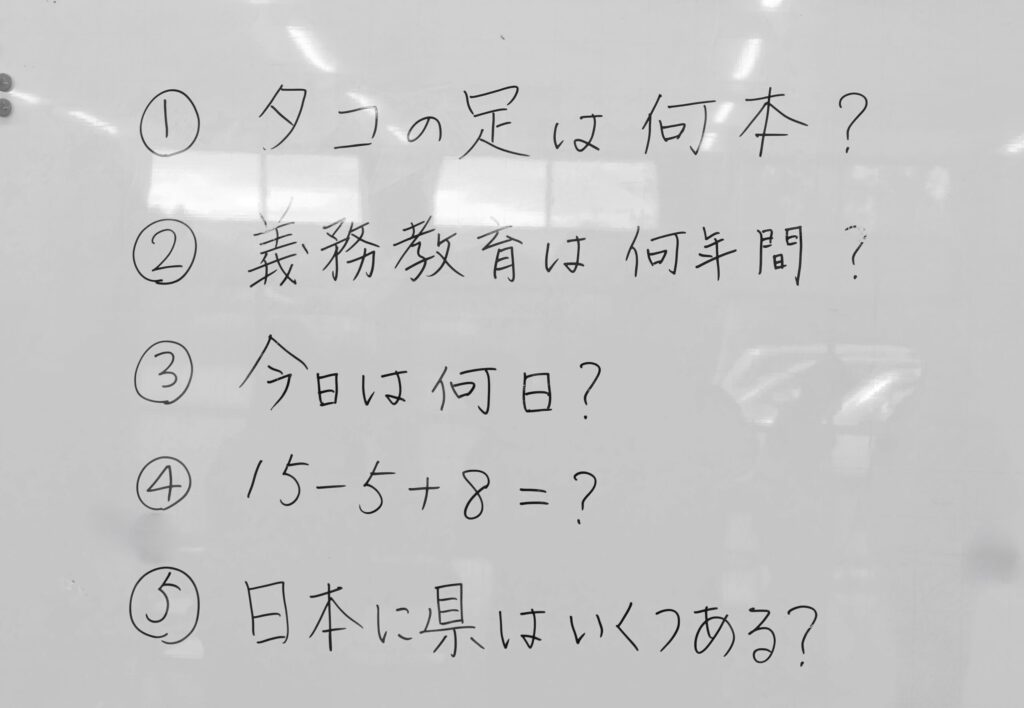 ① タコの足は何本?
② 義務教育は何年間?
③ 今日は何日?
④ 15-5+8=?
⑤ 日本に県はいくつある?